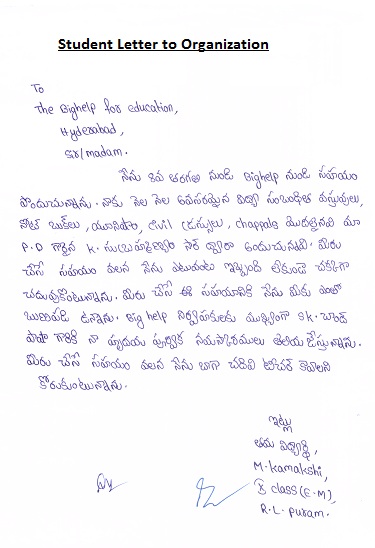 Student Letter to Organization
To
The Bighelp for education,
Hyderabad,
Sir/madam.
నేను 8వ తరగతి నుండి Bighelp నుండి సహాయం
పొందుచున్నాను. నాకు నెల నెల అవసరమైన విద్యా సంబంధిత వస్తువులు,
నోట్ బుక్‌లు, యూనిఫాం, civil డ్రస్సులు, chappals మొదలైనవి మా
P.D గారైన K. సుబ్రహ్మణ్యం సార్ ద్వారా అందుచున్నవి. మీరు
చేసే సహాయం వలన నేను ఎటువంటి ఇబ్బంది లేకుండా చక్కగా
చదువుకొంటున్నాను. మీరు చేసే ఈ సహాయానికి నేను మీకు ఎంతో
బుణపడి ఉన్నాను. Big help నిర్వాహకులకు ముఖ్యంగా Sk. చాంద్
పాషా గారికి నా హృదయ పూర్వక నమస్కారములు తెలియ చేస్తున్నాను.
మీరు చేసే సహాయం వలన నేను బాగా చదివి టీచర్ కావాలని
కోరుకుంటున్నాను.
ఇట్లు
తమ విద్యార్థి,
M. Kamakshi,
X class (E.M),
R.L. Puram.